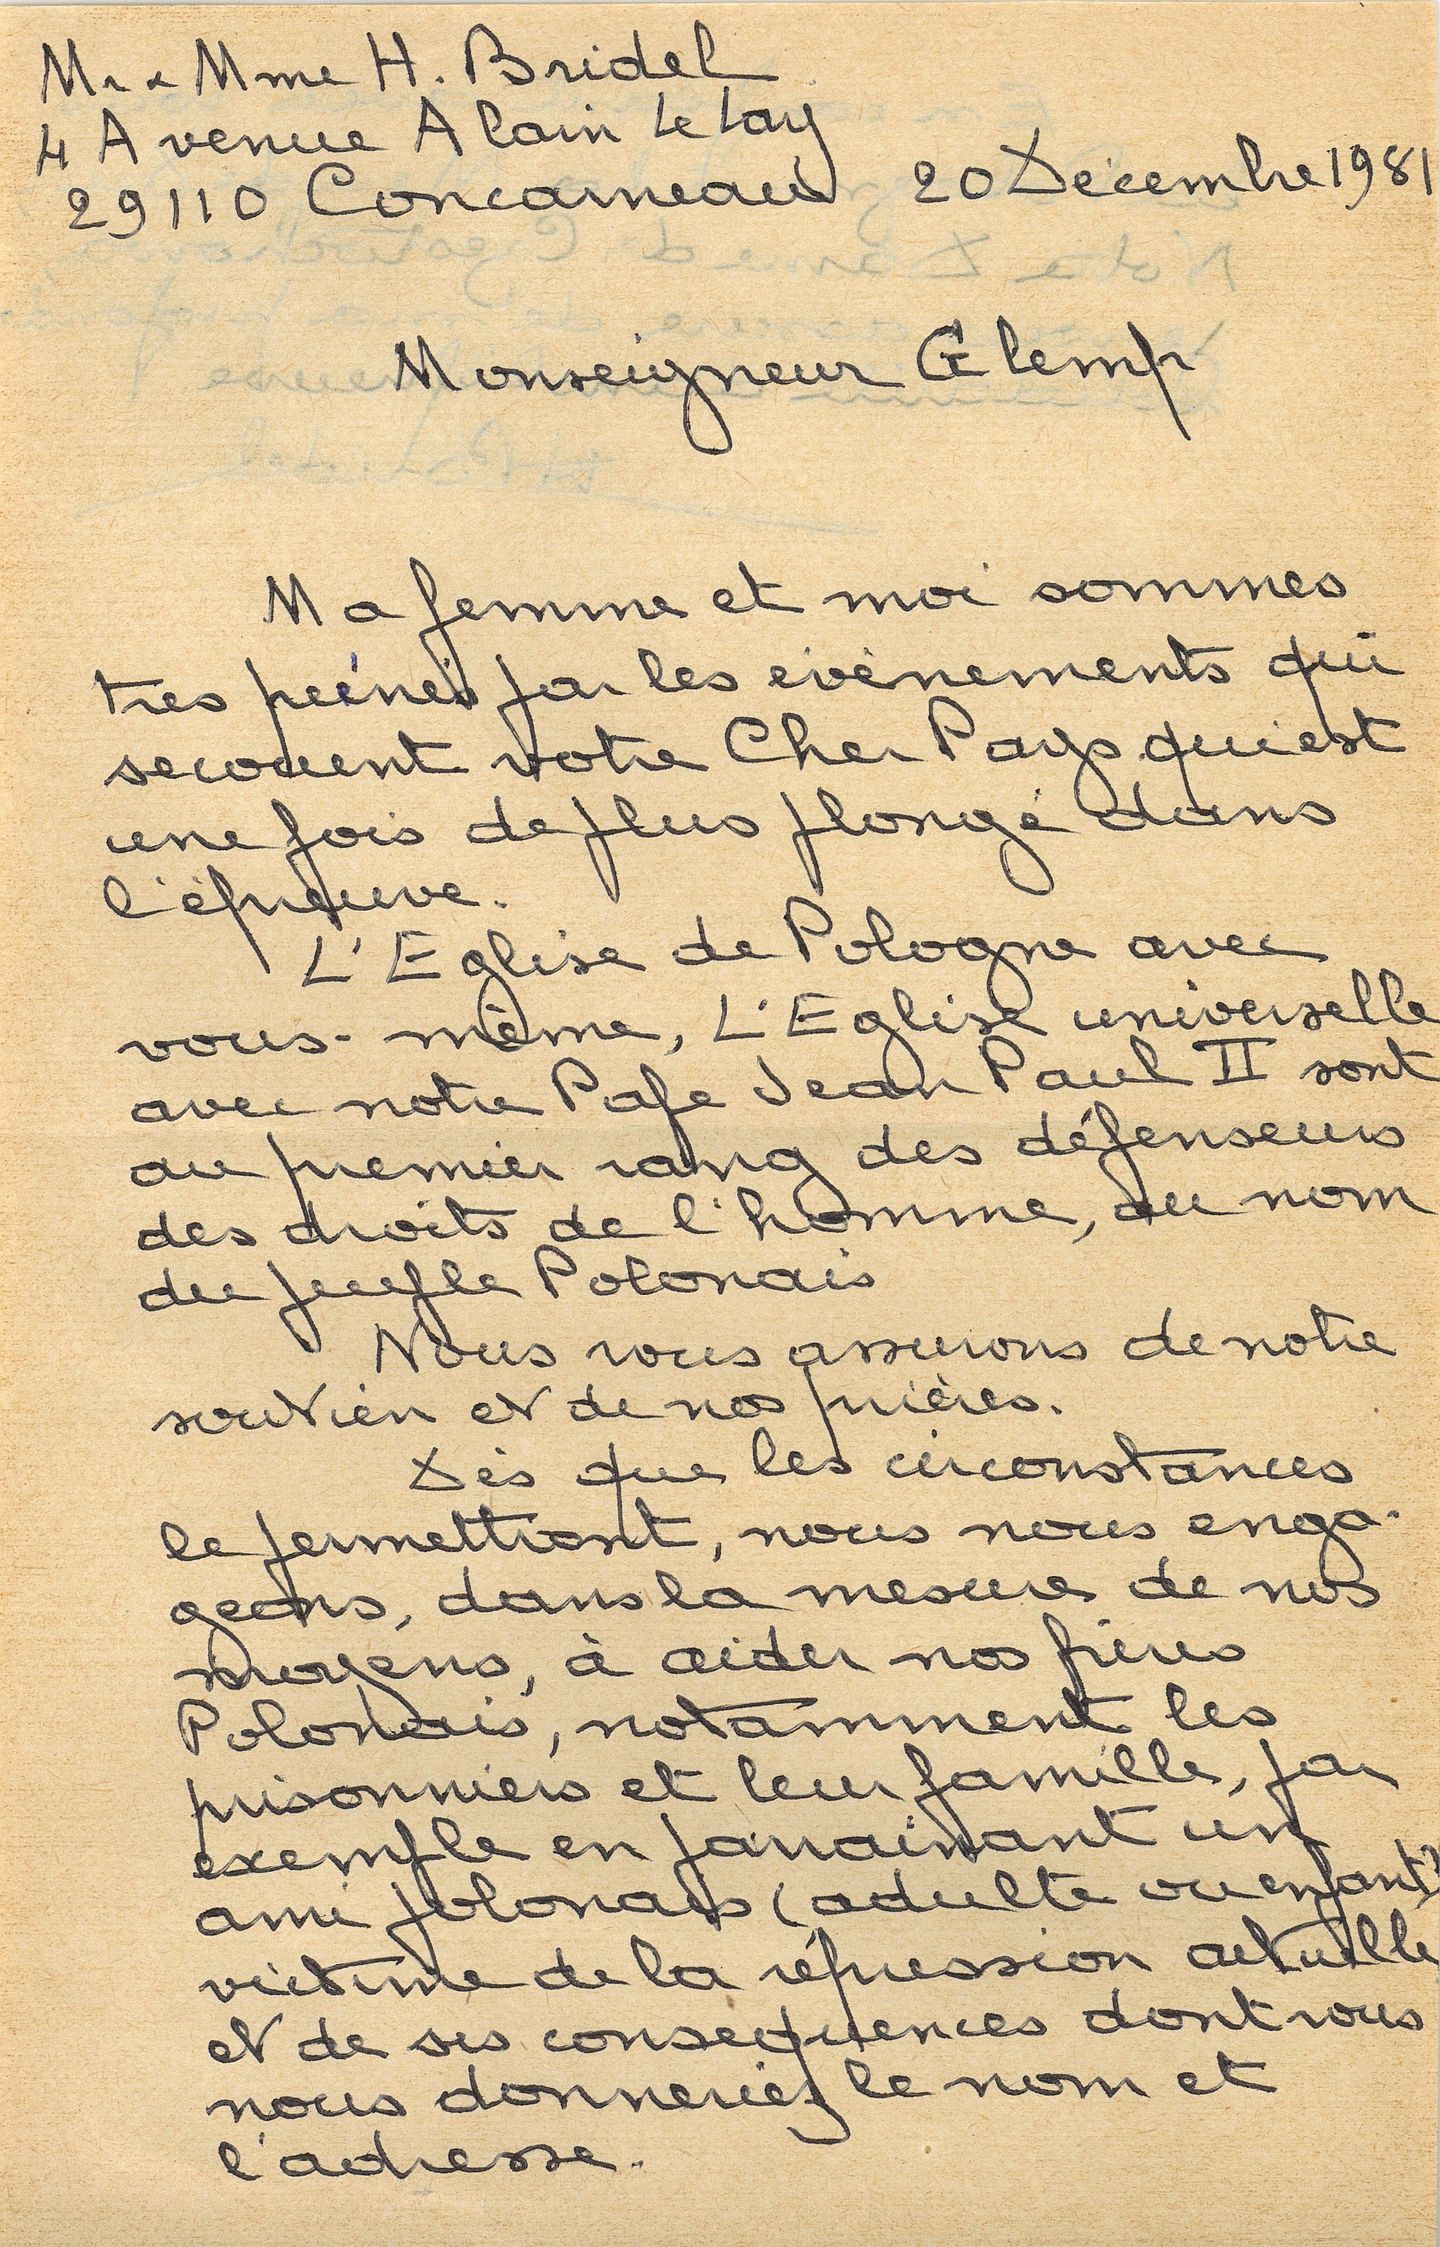 Mr & Mme H. Bridel
4 Avenue Alain Le Lay
29110 Concarneau 20 Décembre 1981
Monseigneur Glemp
Ma femme et moi sommes
très peinés par les évènements qui
secouent votre Cher Pays qui est
une fois de plus plongé dans
l'épreuve.
L'Eglise de Pologne avec
vous-même, L'Eglise universelle
avec notre Pape Jean Paul II sont
au premier rang des défenseurs
des droits de l'homme, au nom
du peuple Polonais
Nous vous assurons de notre
soutien et de nos prières.
Dès que les circonstances
le permettront, nous nous enga-
geons, dans la mesure de nos
moyens, à aider nos frères
Polonais, notamment les
prisonniers et leur famille, par
exemple en parrainant un
ami polonais (adulte ou enfant)
victime de la répression actuelle
et de ses conséquences dont vous
nous donneriez le nom et
l'adresse.